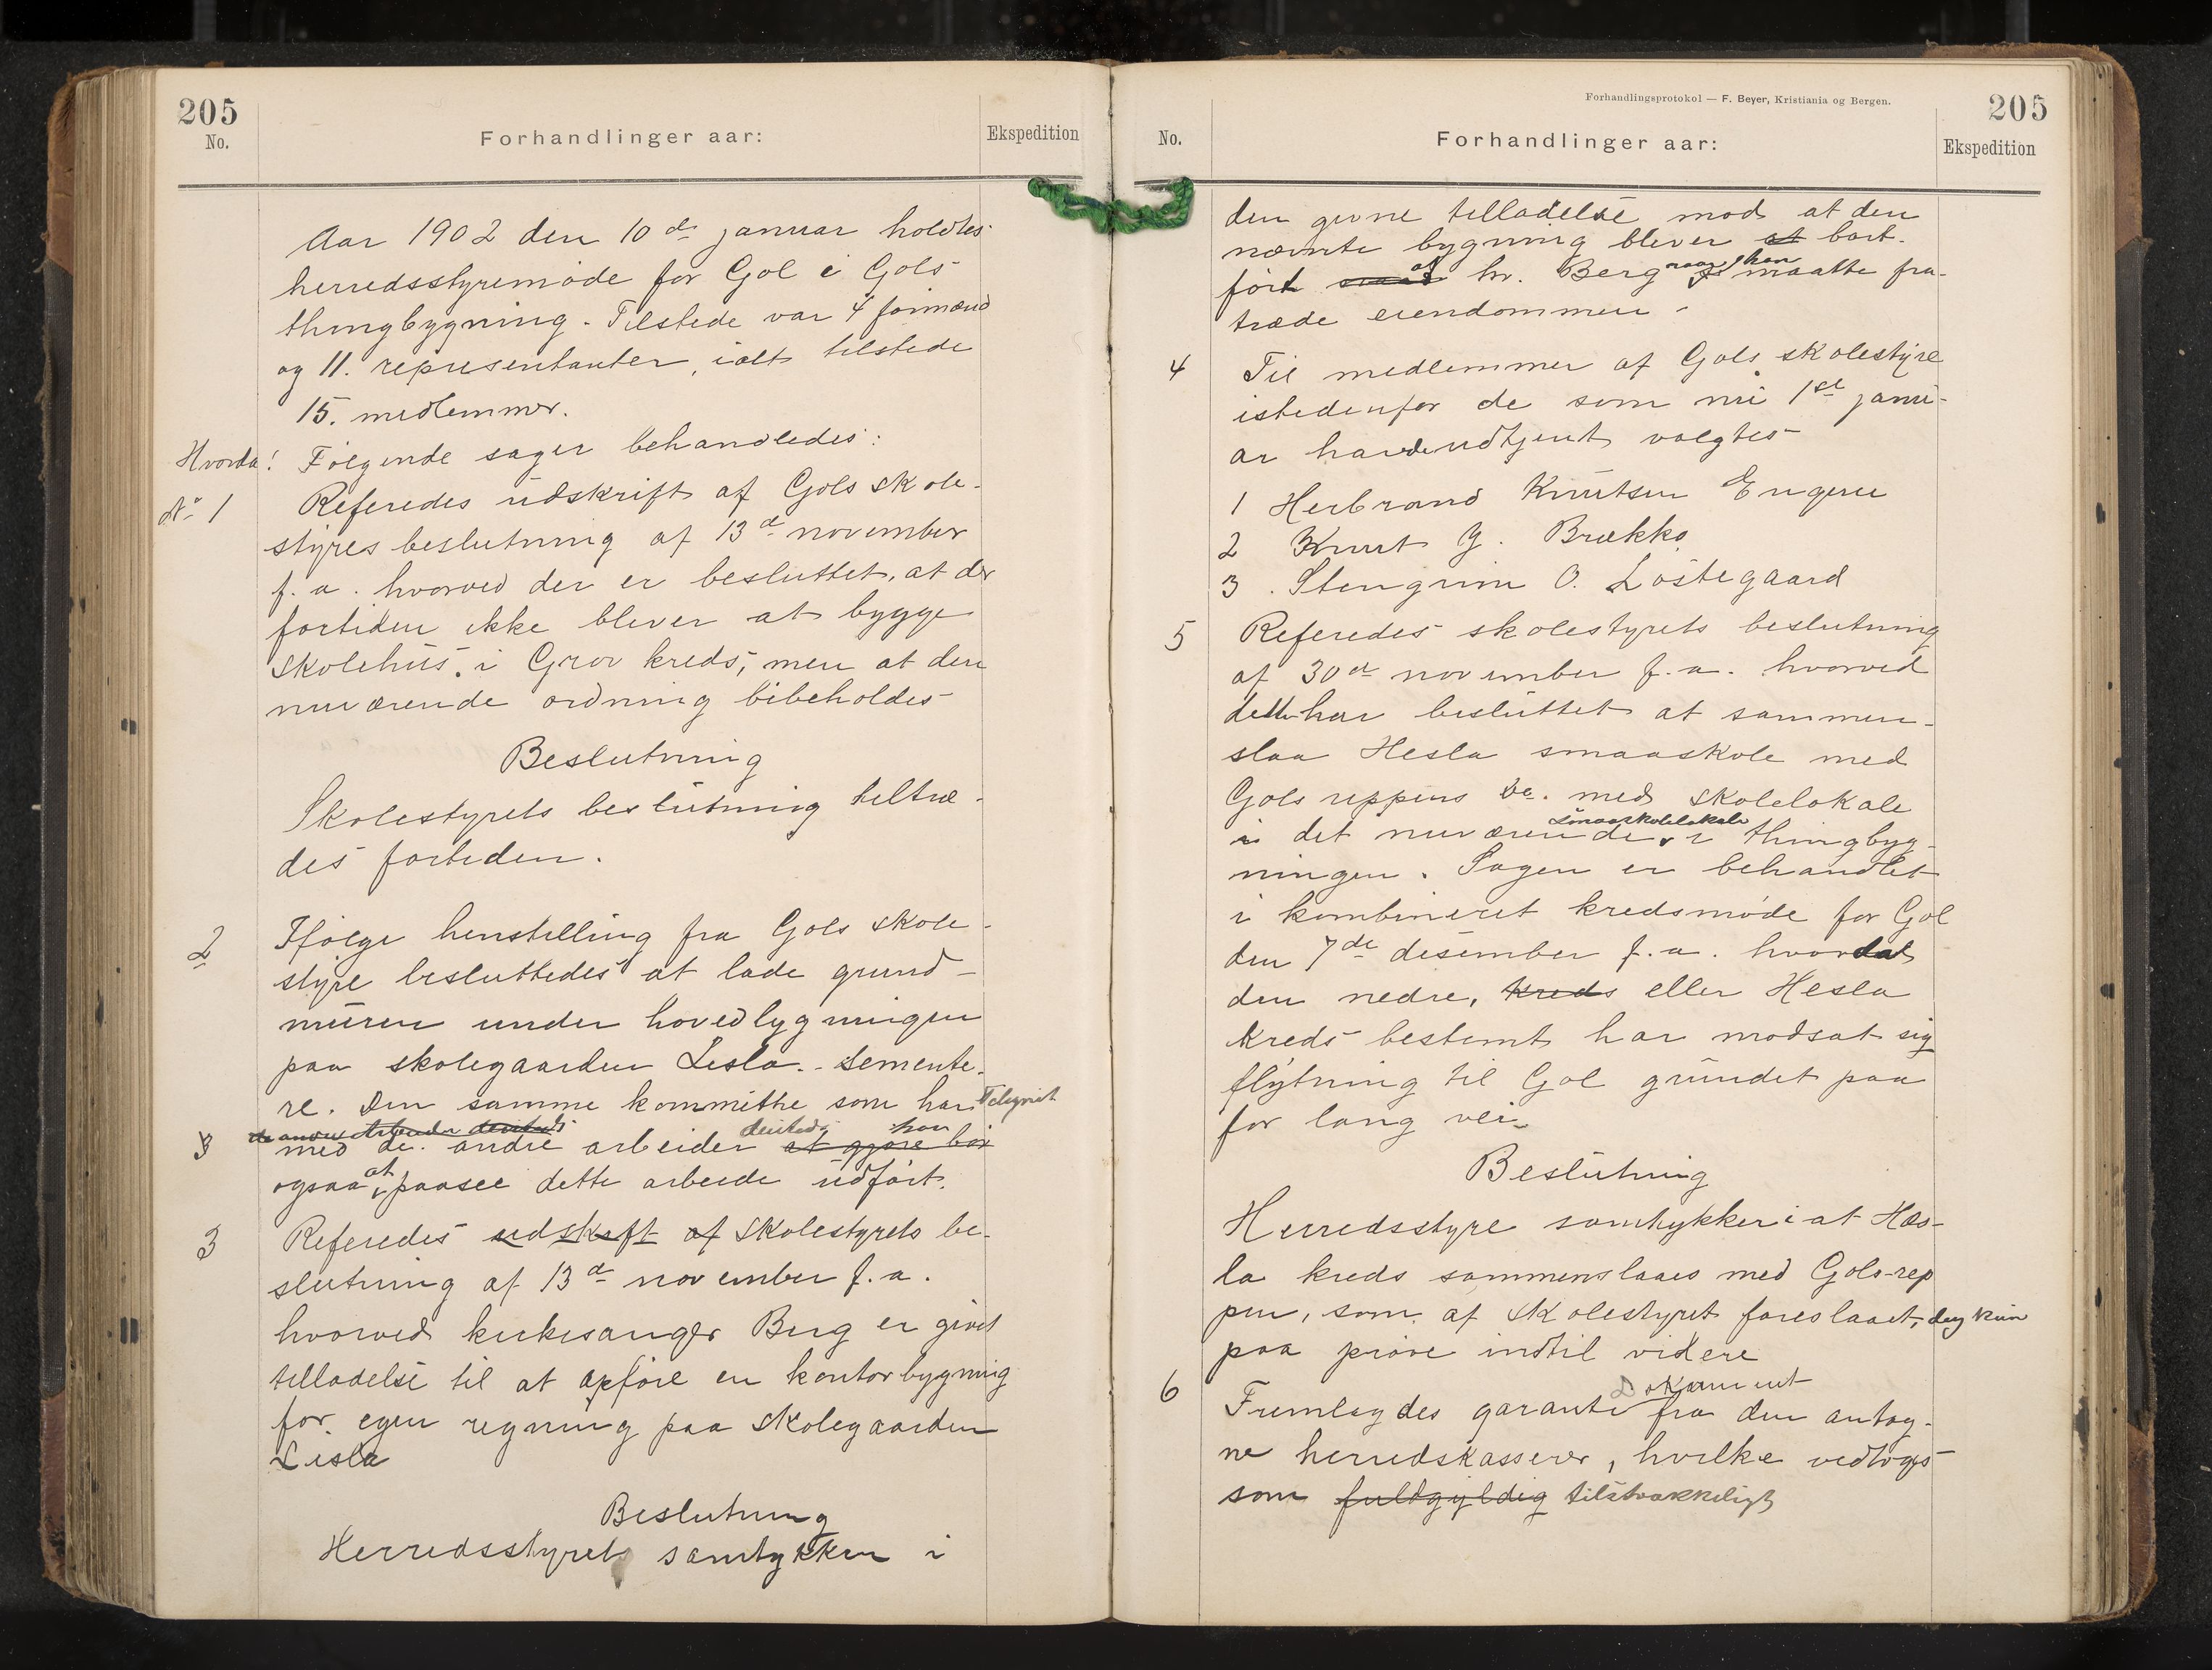 205
No.
Forhandlinger aar:
Ekspedition
Aar 1902 den 10de januar holdtes
herredsstyremøde for Gol i Gols
thingbygning. Tilstede var 4 formænd
og 11. representanter, ialt tilstede
15. medlemmer.
Hvorda! Følgende sager behandledes:
No 1 Referedes udskrift af Gols skole-
styres beslutning af 13de november
f. a. hvorved der er besluttet, at der
fortiden ikke bliver at bygge
skolehus i Grov kreds, men at den
nuværende ordning bibeholdes
Beslutning
Skolestyrets beslutning tiltræ-
des fortiden.
2 Ifølge henstilling fra Gols skole-
styre besluttedes at lade grund-
muren under hovedbygningen
paa skolegaarden Lesla semente-
re. Den samme kommithe som har Tilsynet
de andre Arbeider dersteds
3 med de andre arbeider dersteds at gjøre bør har
ogsaa at paasee dette arbeide udført.
3 Referedes udskrft af skolestyrets be-
slutning af 13de november f. a.
hvorved kirkesanger Berg er givet
tilladelse til at opføre en kontorbygning
for egen regning paa skolegaarden
Lesla
Beslutning
Herredsstyrets samtykker i
Forhandlingsprotokol — F. Beyer, Kristiania og Bergen.
205
No.
Forhandlinger aar:
Ekspedition
den givne tilladelse mod at den
nævnte bygning bliver at bort-
ført af hr. Berg naar han maatte fra-
træde eiendommen
4 Til medlemmer af Gols skolestyre
istedenfor de som nu 1ste janu-
ar havde udtjent valgtes
1 Herbrand Knutsen Engene
2 Knut G. Brækko
3. Stengrim O. Løstegaard
5 Referedes skolestyrets beslutning
af 30de november f. a. hvorved
dette har besluttet at sammen-
slaa Hesla smaaskole med
Gols reppens do. med skolelokale
i det nuværende smaaskolelokale i thingbyg-
ningen. Sagen er behandlet
i kombineret kredsmøde for Gol
den 7de desember f. a. hvor dat
den nedre, kreds eller Hesla
kreds bestemt har modsat sig
flytning til Gol grundet paa
for lang vei
Beslutning
Herredsstyre samtykker i at Hæs-
la kreds sammenslaaes med Gols-rep
pen, som af skolestyret foreslaaet, dog kun
paa prøve indtil videre
6 Fremlagdes garanti Dokument fra den antag-
ne herredskasserer, hvilke vedtoges
som fuldgyldig tilstrækkeligt